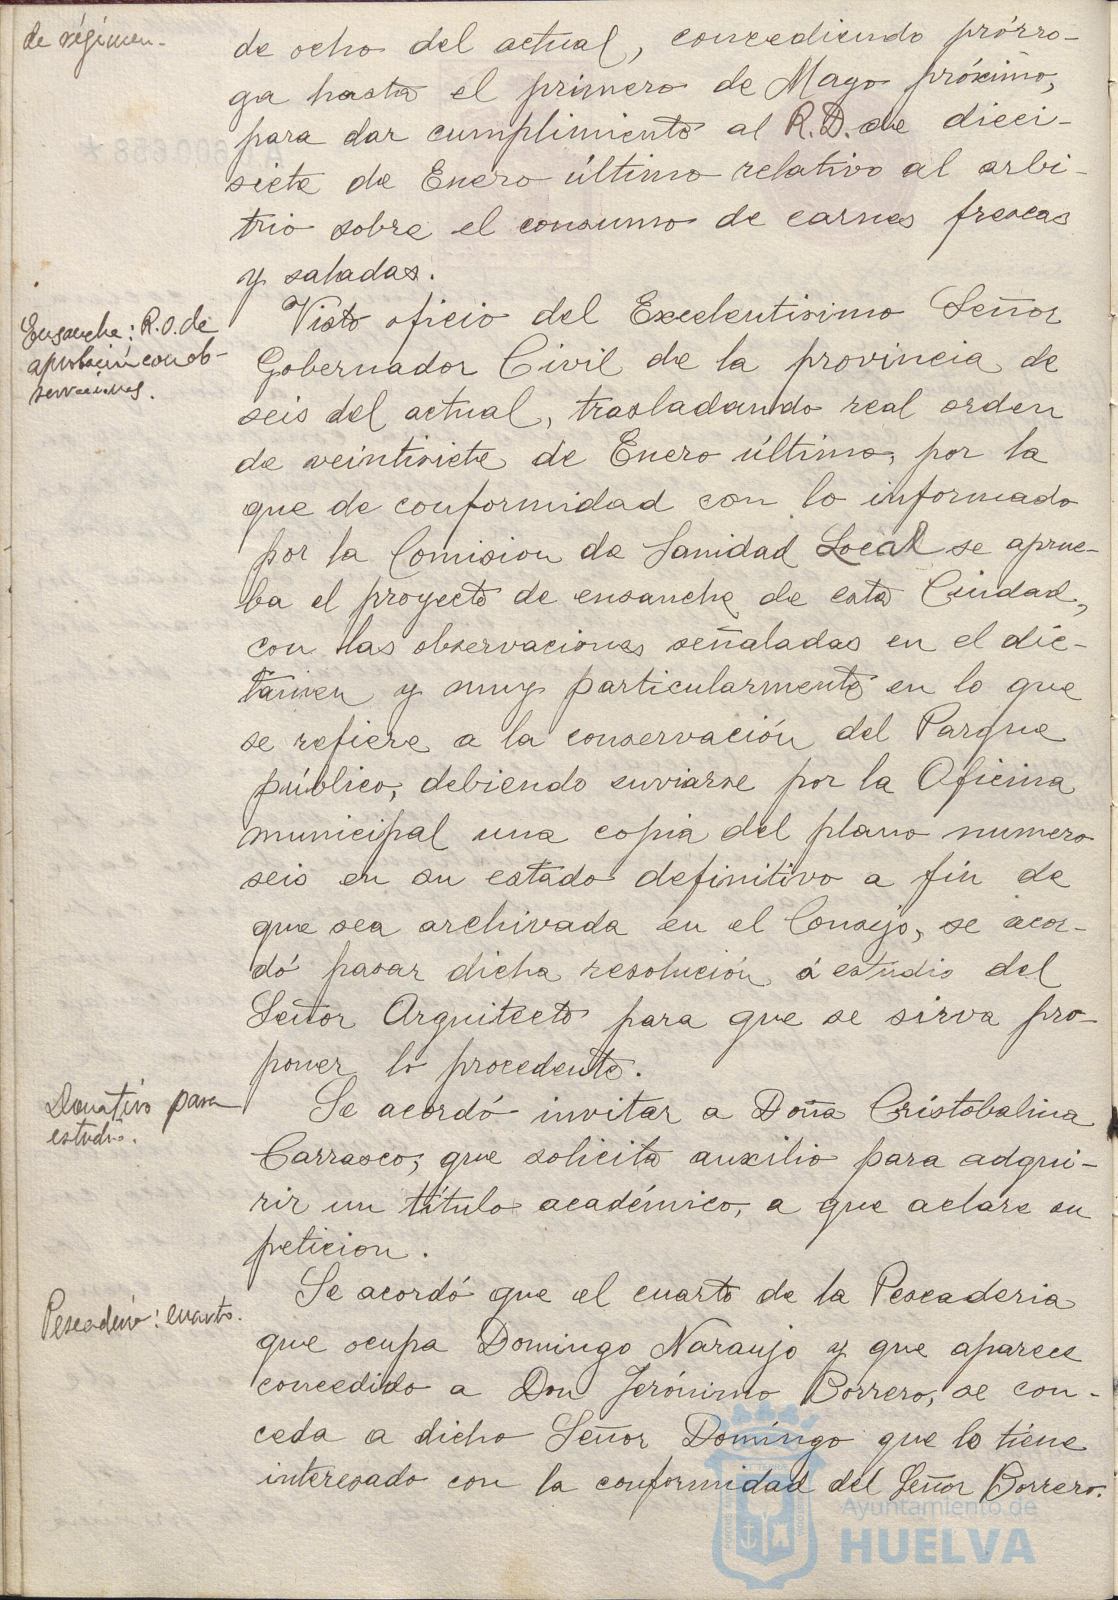 de régimen.
de ocho del actual, concediendo prórro-
ga hasta el primero de Mayo próximo,
para dar cumplimiento al R.D. de dieci-
siete de Enero último relativo al arbi-
trio sobre el consumo de carnes frescas
y saladas.
Ensanche: R.O. de
aprobación con ob-
servaciones.
Visto oficio del Excelentisimo Señor
Gobernador Civil de la provincia de
seis del actual, trasladando real orden
de veintisiete de Enero último, por la
que de conformidad con lo informado
por la Comision de Sanidad Local se aprue-
ba el proyecto de ensanche de esta Ciudad,
con las observaciones señaladas en el dic-
tamen y muy particularmente en lo que
se refiere a la conservación del Parque
público, debiendo enviarse por la Oficina
municipal una copia del plano numero
seis en su estado definitivo a fin de
que sea archivada en el Consejo, se acor-
dó pasar dicha resolución á estudio del
Señor Arquitecto para que se sirva pro-
poner lo procedente.
Donativo para
estudio.
Se acordó invitar a Doña Cristobalina
Carrasco, que solicita auxilio para adqui-
rir un título académico, a que aclare su
peticion.
Pescadería: cuarto.
Se acordó que el cuarto de la Pescaderia
que ocupa Domingo Naranjo y que aparece
concedido a Don Jerónimo Borrero, se con-
ceda a dicho Señor Domingo que lo tiene
interesado con la conformidad del Señor Borrero.
Ayuntamiento de
HUELVA